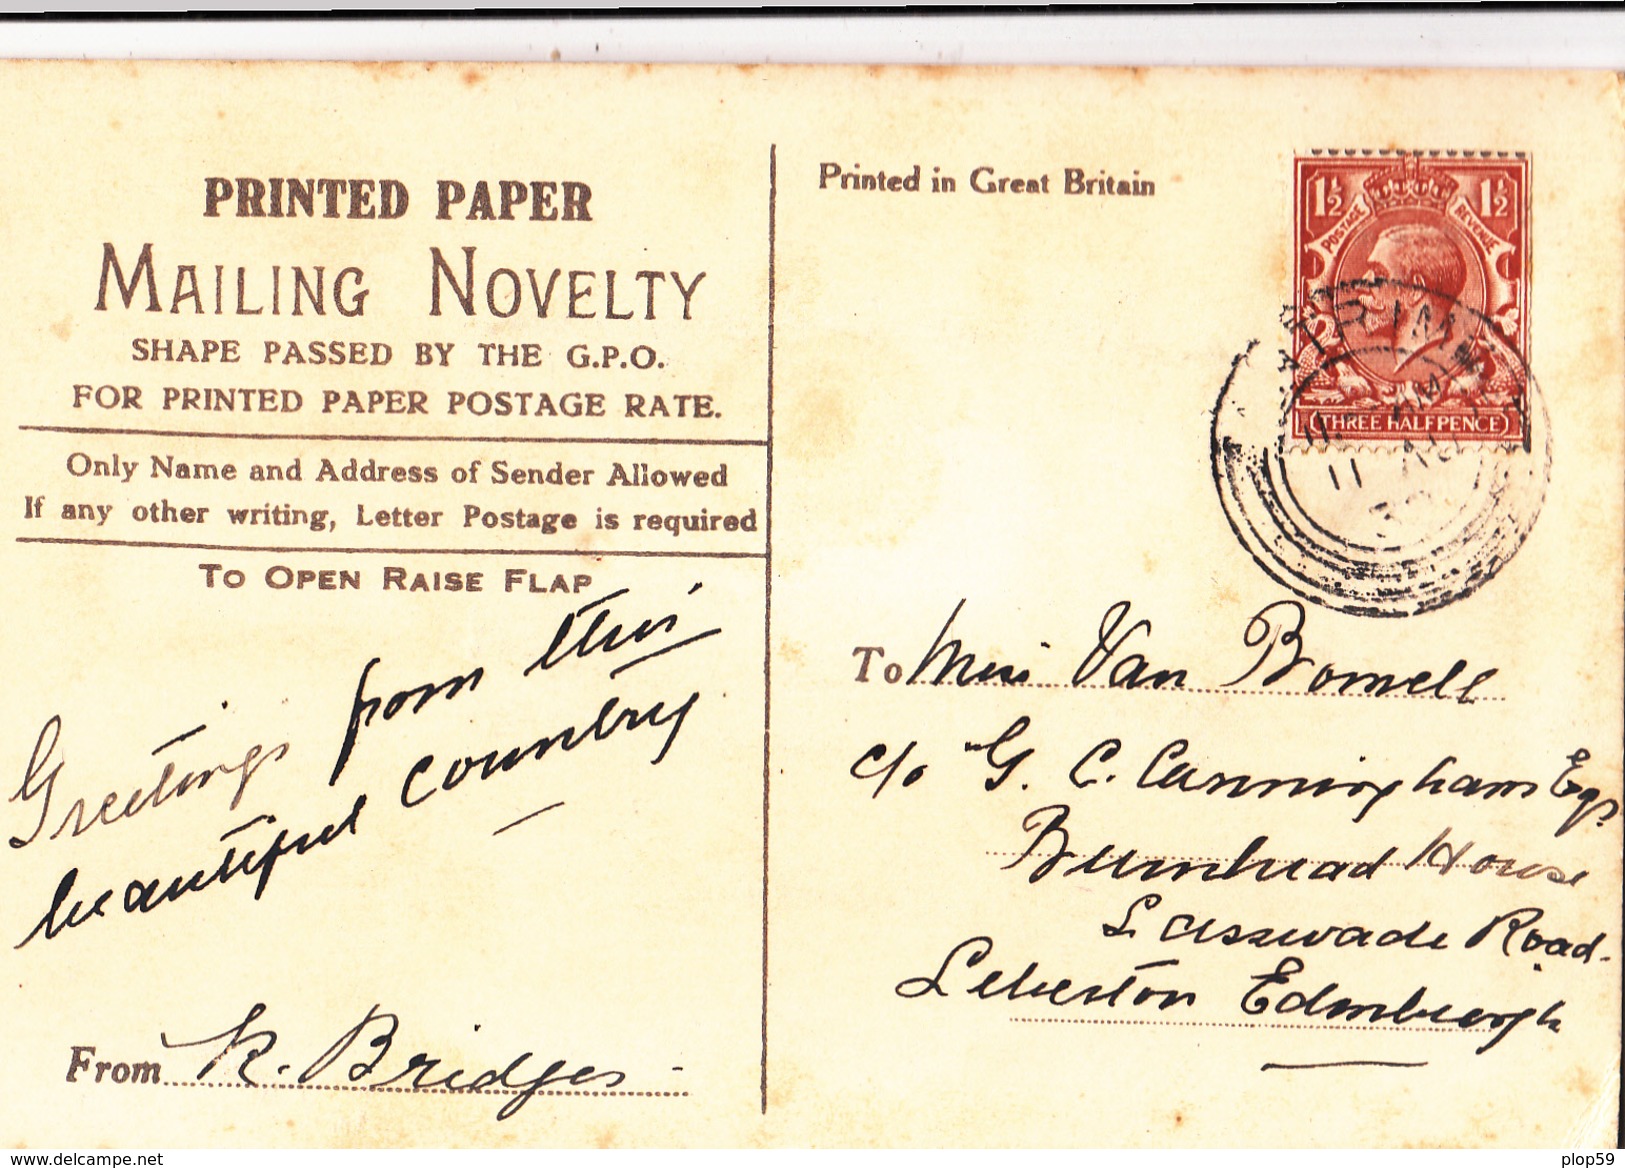 PRINTED PAPER
MAILING NOVELTY
SHAPE PASSED BY THE G.P.O.
FOR PRINTED PAPER POSTAGE RATE.
Only Name and Address of Sender Allowed
If any other writing, Letter Postage is required
TO OPEN RAISE FLAP
Greetings from this
beautiful country
From K. Bridges
Printed in Great Britain
1½ 1½
POSTAGE REVENUE
THREE HALFPENCE
11
To Miss Van Bomell
c/o G. C. Cunningham Esq.
Burnhead House
Lasswade Road.
Liberton Edinburgh
delcampe.net
plop59